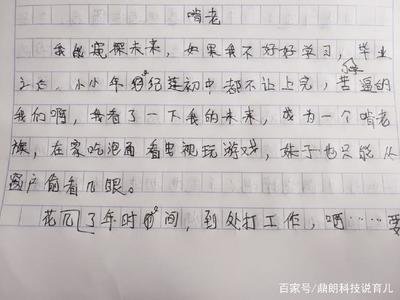 啃老
我能窥探未来，如果我不好好学习，毕业
之后，小小年纪连初中都不让上完，苦逼的
我们啊，我看了一下我的未来，成为一个啃老
族，在家吃泡面看电视玩游戏，妹子也只能从
窗户前看几眼。
花几了年时间，到处打工作，啊……要
百家号/鼎朗科技说育儿